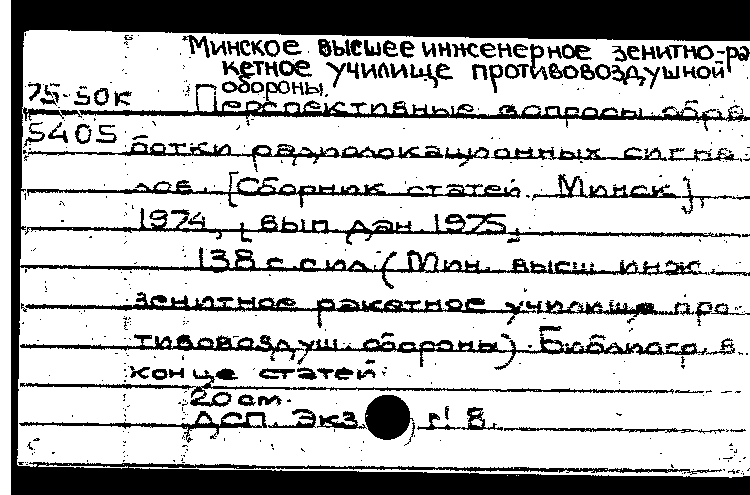 Минское высшее инженерное зенитно-ра
кетное училище противовоздушной
обороны.
75-50к
Перспективные вопросы обра
5405
ботки радиолокационных сигна
лов. [Сборник статей. Минск],
1974, [вып. дан. 1975].
138 с. с ил. (Мин. высш. инж.
зенитное ракетное училище про-
тивовоздуш. обороны). Библиогр. в
конце статей.
20 см.
ДСП. Экз. 8.